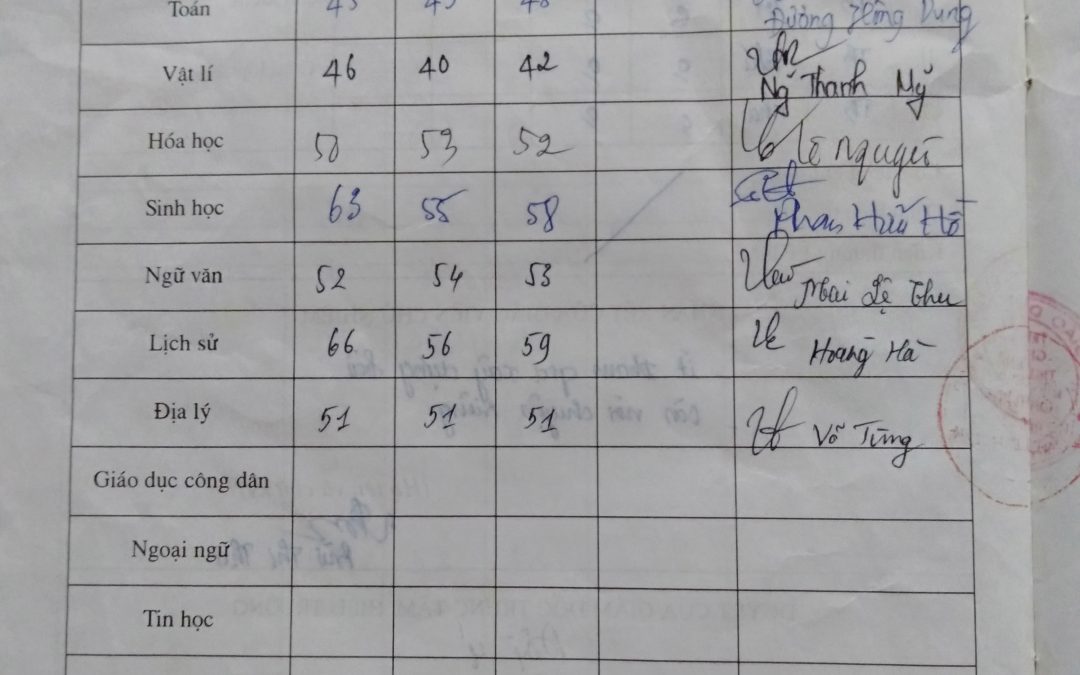 Toán 45 45 48 Dương Hồng Dung
Vật lí 46 40 42 Ng Thanh Mỹ
Hóa học 50 53 52 Lê Nguyệt
Sinh học 63 55 58 Phan Hữu Hổ
Ngữ văn 52 54 53 Mai Lệ Thu
Lịch sử 66 56 59 Hoàng Hà
Địa lý 51 51 51 Võ Tùng
Giáo dục công dân
Ngoại ngữ
Tin học